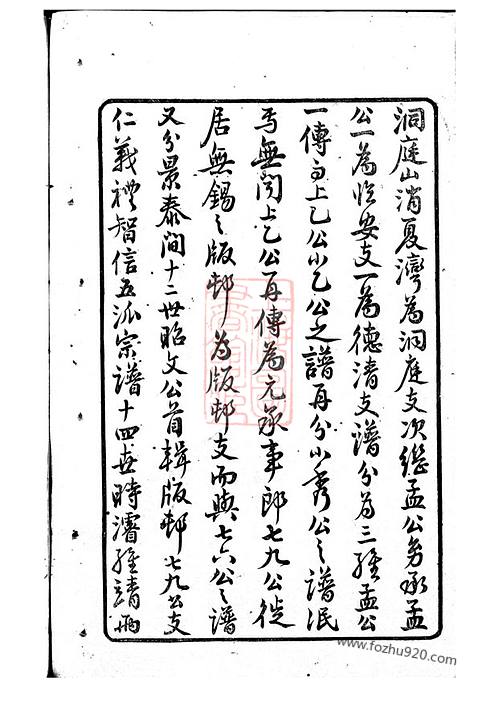 洞庭山消夏灣為洞庭支次繼孟公多承孟
公一為臨安支一為德清支譜分為三繼孟公
一傳而上乙公小乙公之譜再分小秀公之譜泯
焉無聞上乙公再傳為元承事郎七九公徙
居無錫之版邨為版邨支而與七六公之譜
又分景泰間十二世昭文公首輯版邨七九公支
仁義禮智信五派宗譜十四世時濬維靖兩
www.fozhu920.com